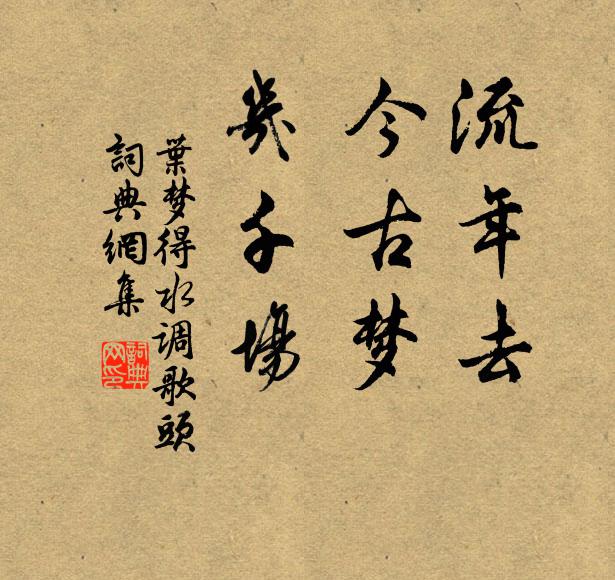 流年去
今古梦
幾千場
葉梦得水调歌頭
詞典網集
詞典网印